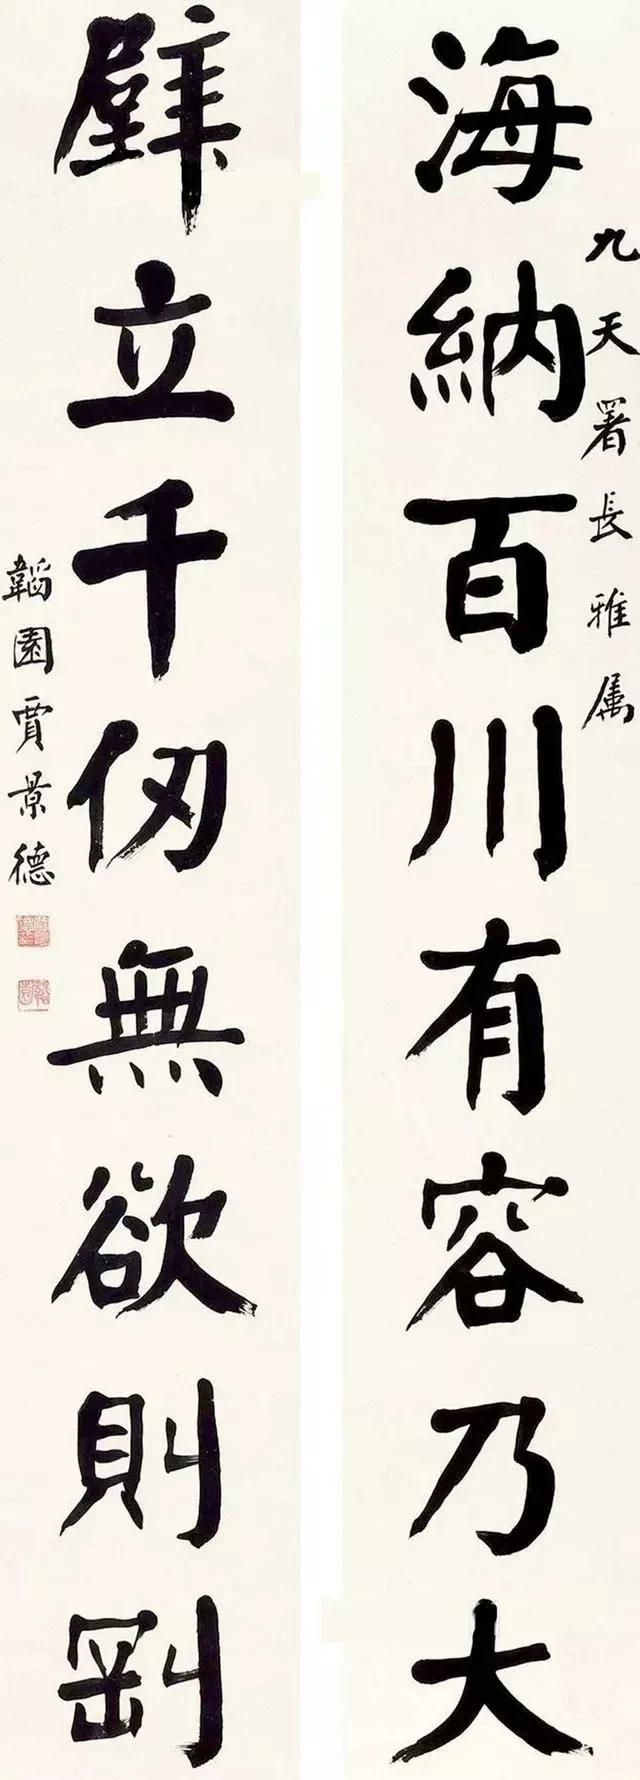 九天署長雅属
海納百川有容乃大
壁立千仞無欲則剛
韜園賈景德